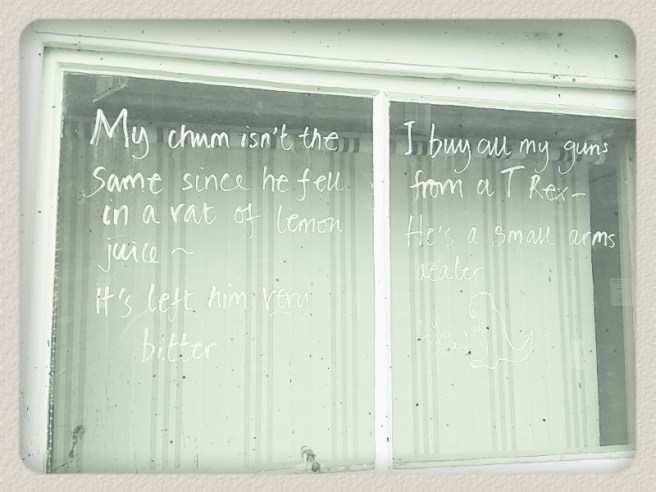 My chum isn't the
Same since he fell
in a vat of lemon
juice ~
It's left him very
bitter
I buy all my guns
from a T Rex -
He's a small arms
dealer